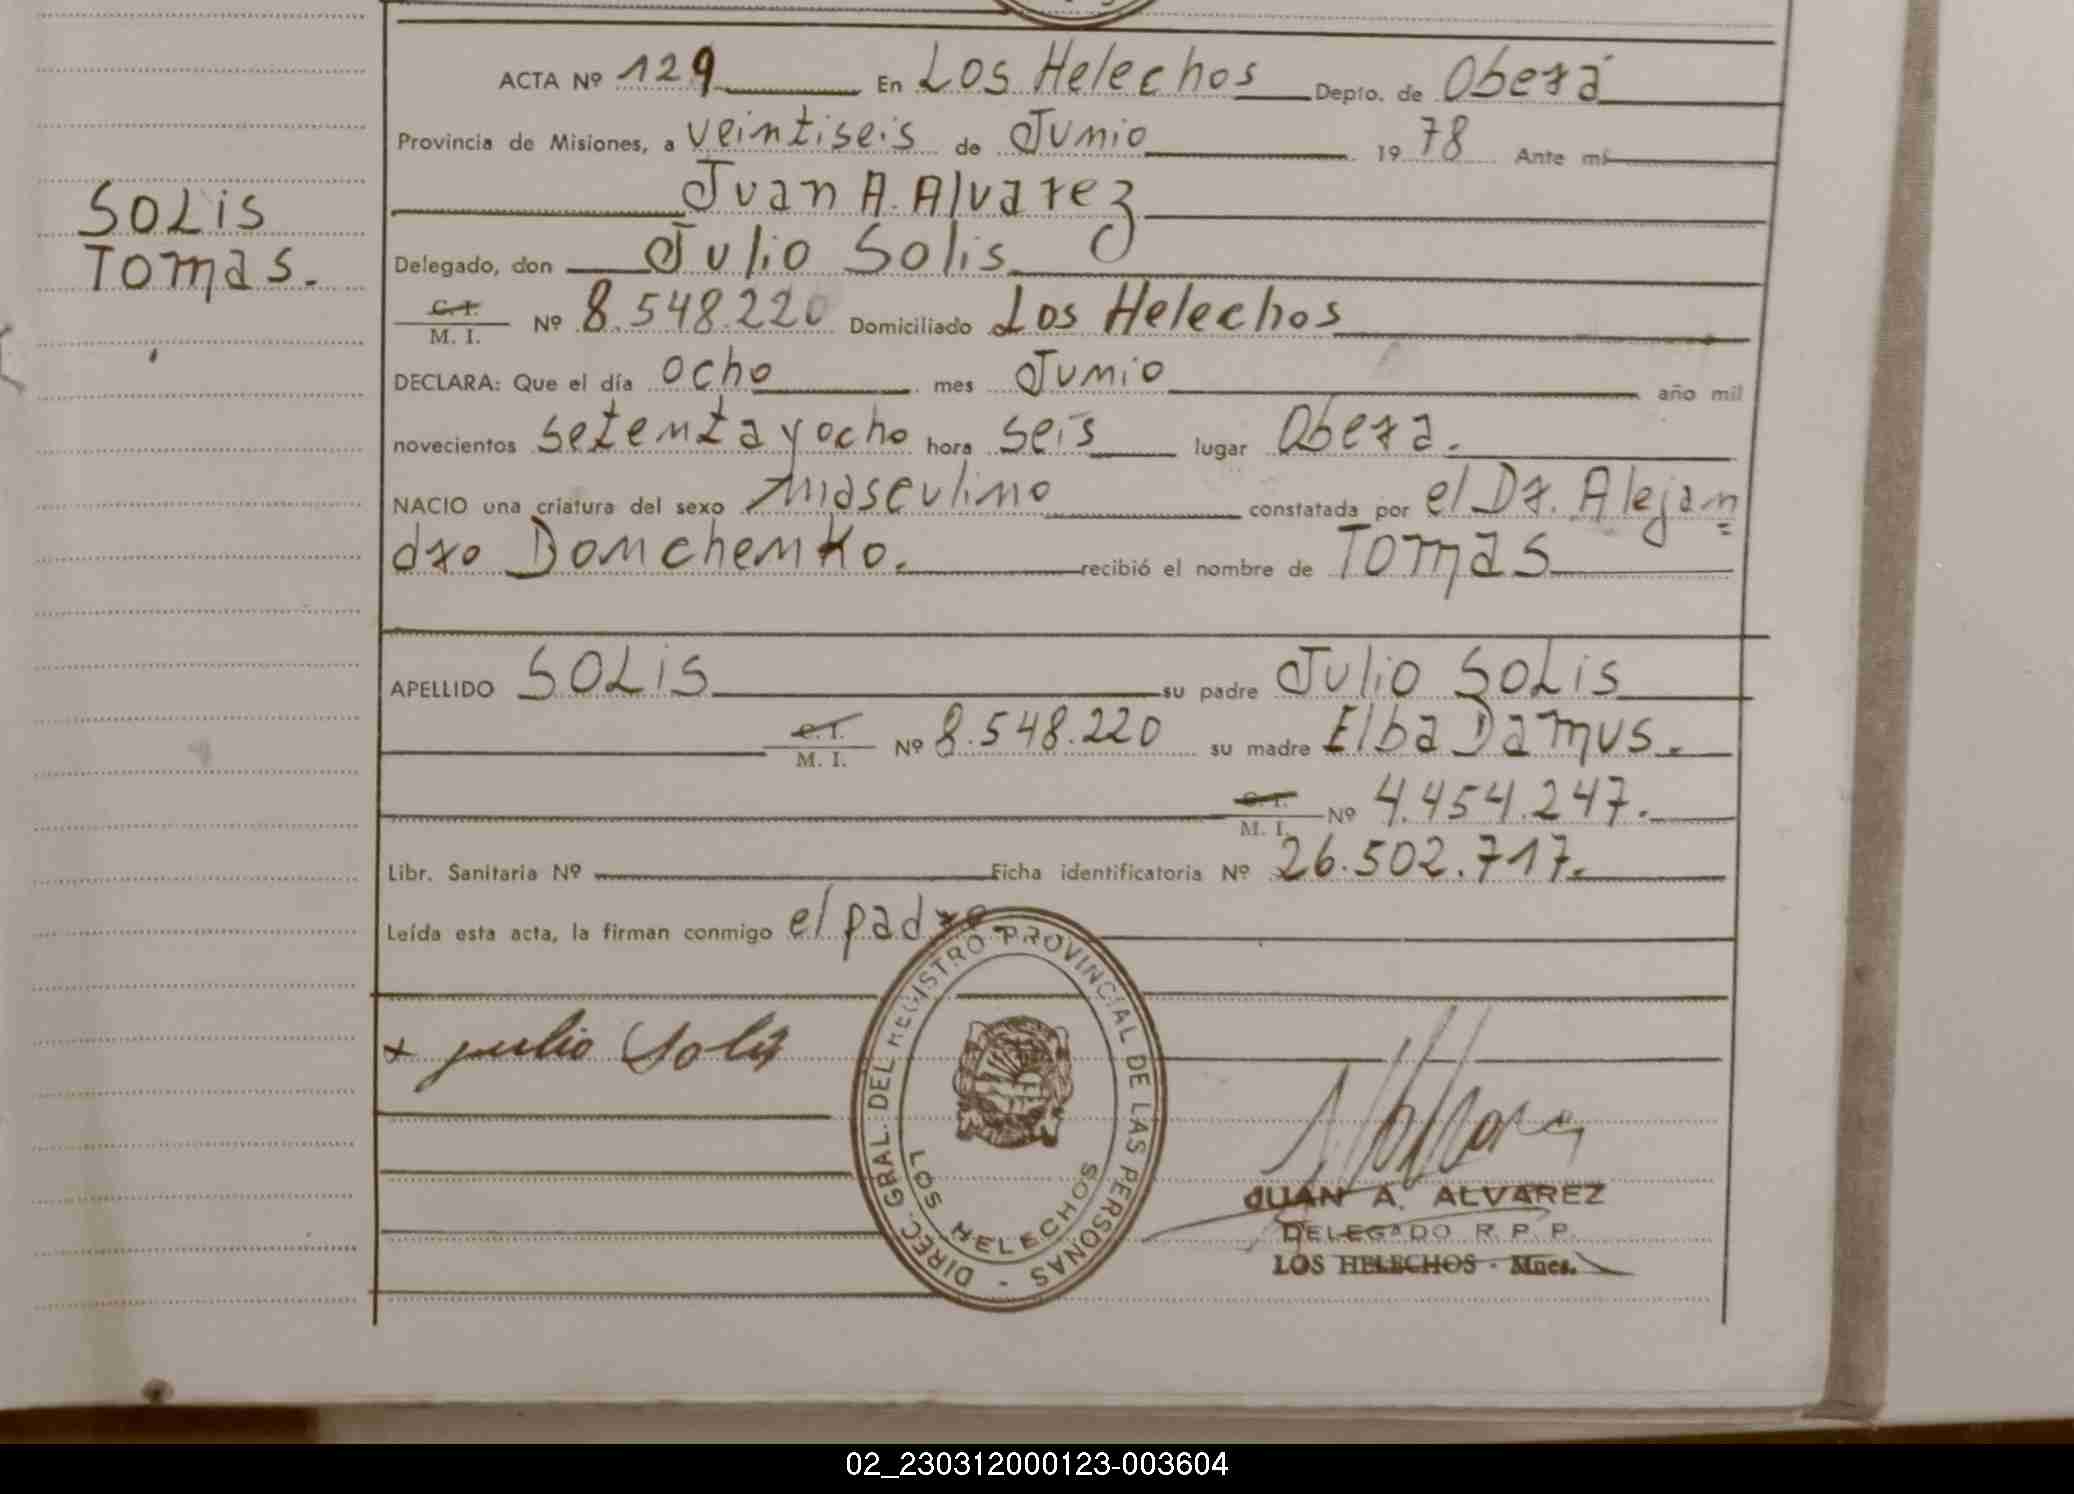 ACTA Nº 129 En Los Helechos Depto. de Oberá
Provincia de Misiones, a veintiseis de Junio 1978 Ante mí
Juan A. Alvarez
SOLIS
TOMAS.
Delegado, don Julio Solis
C. I.
M. I. Nº 8.548.220 Domiciliado Los Helechos
DECLARA: Que el día ocho mes Junio año mil
novecientos setenta y ocho hora seis lugar Obera.
NACIO una criatura del sexo masculino constatada por el Dr. Alejan=
dro Domchenko. recibió el nombre de TOMAS
APELLIDO SOLIS su padre Julio SOLIS
C. I.
M. I. Nº 8.548.220 su madre Elba Damus.
C. I.
M. I. Nº 4.454.247.
Libr. Sanitaria Nº Ficha identificatoria Nº 26.502.717.
Leída esta acta, la firman conmigo el padre
x julio Solis
DIREC. GRAL. DEL REGISTRO PROVINCIAL DE LAS PERSONAS -
LOS HELECHOS
JUAN A. ALVAREZ
DELEGADO R. P. P.
LOS HELECHOS - Mnes.
02_230312000123-003604